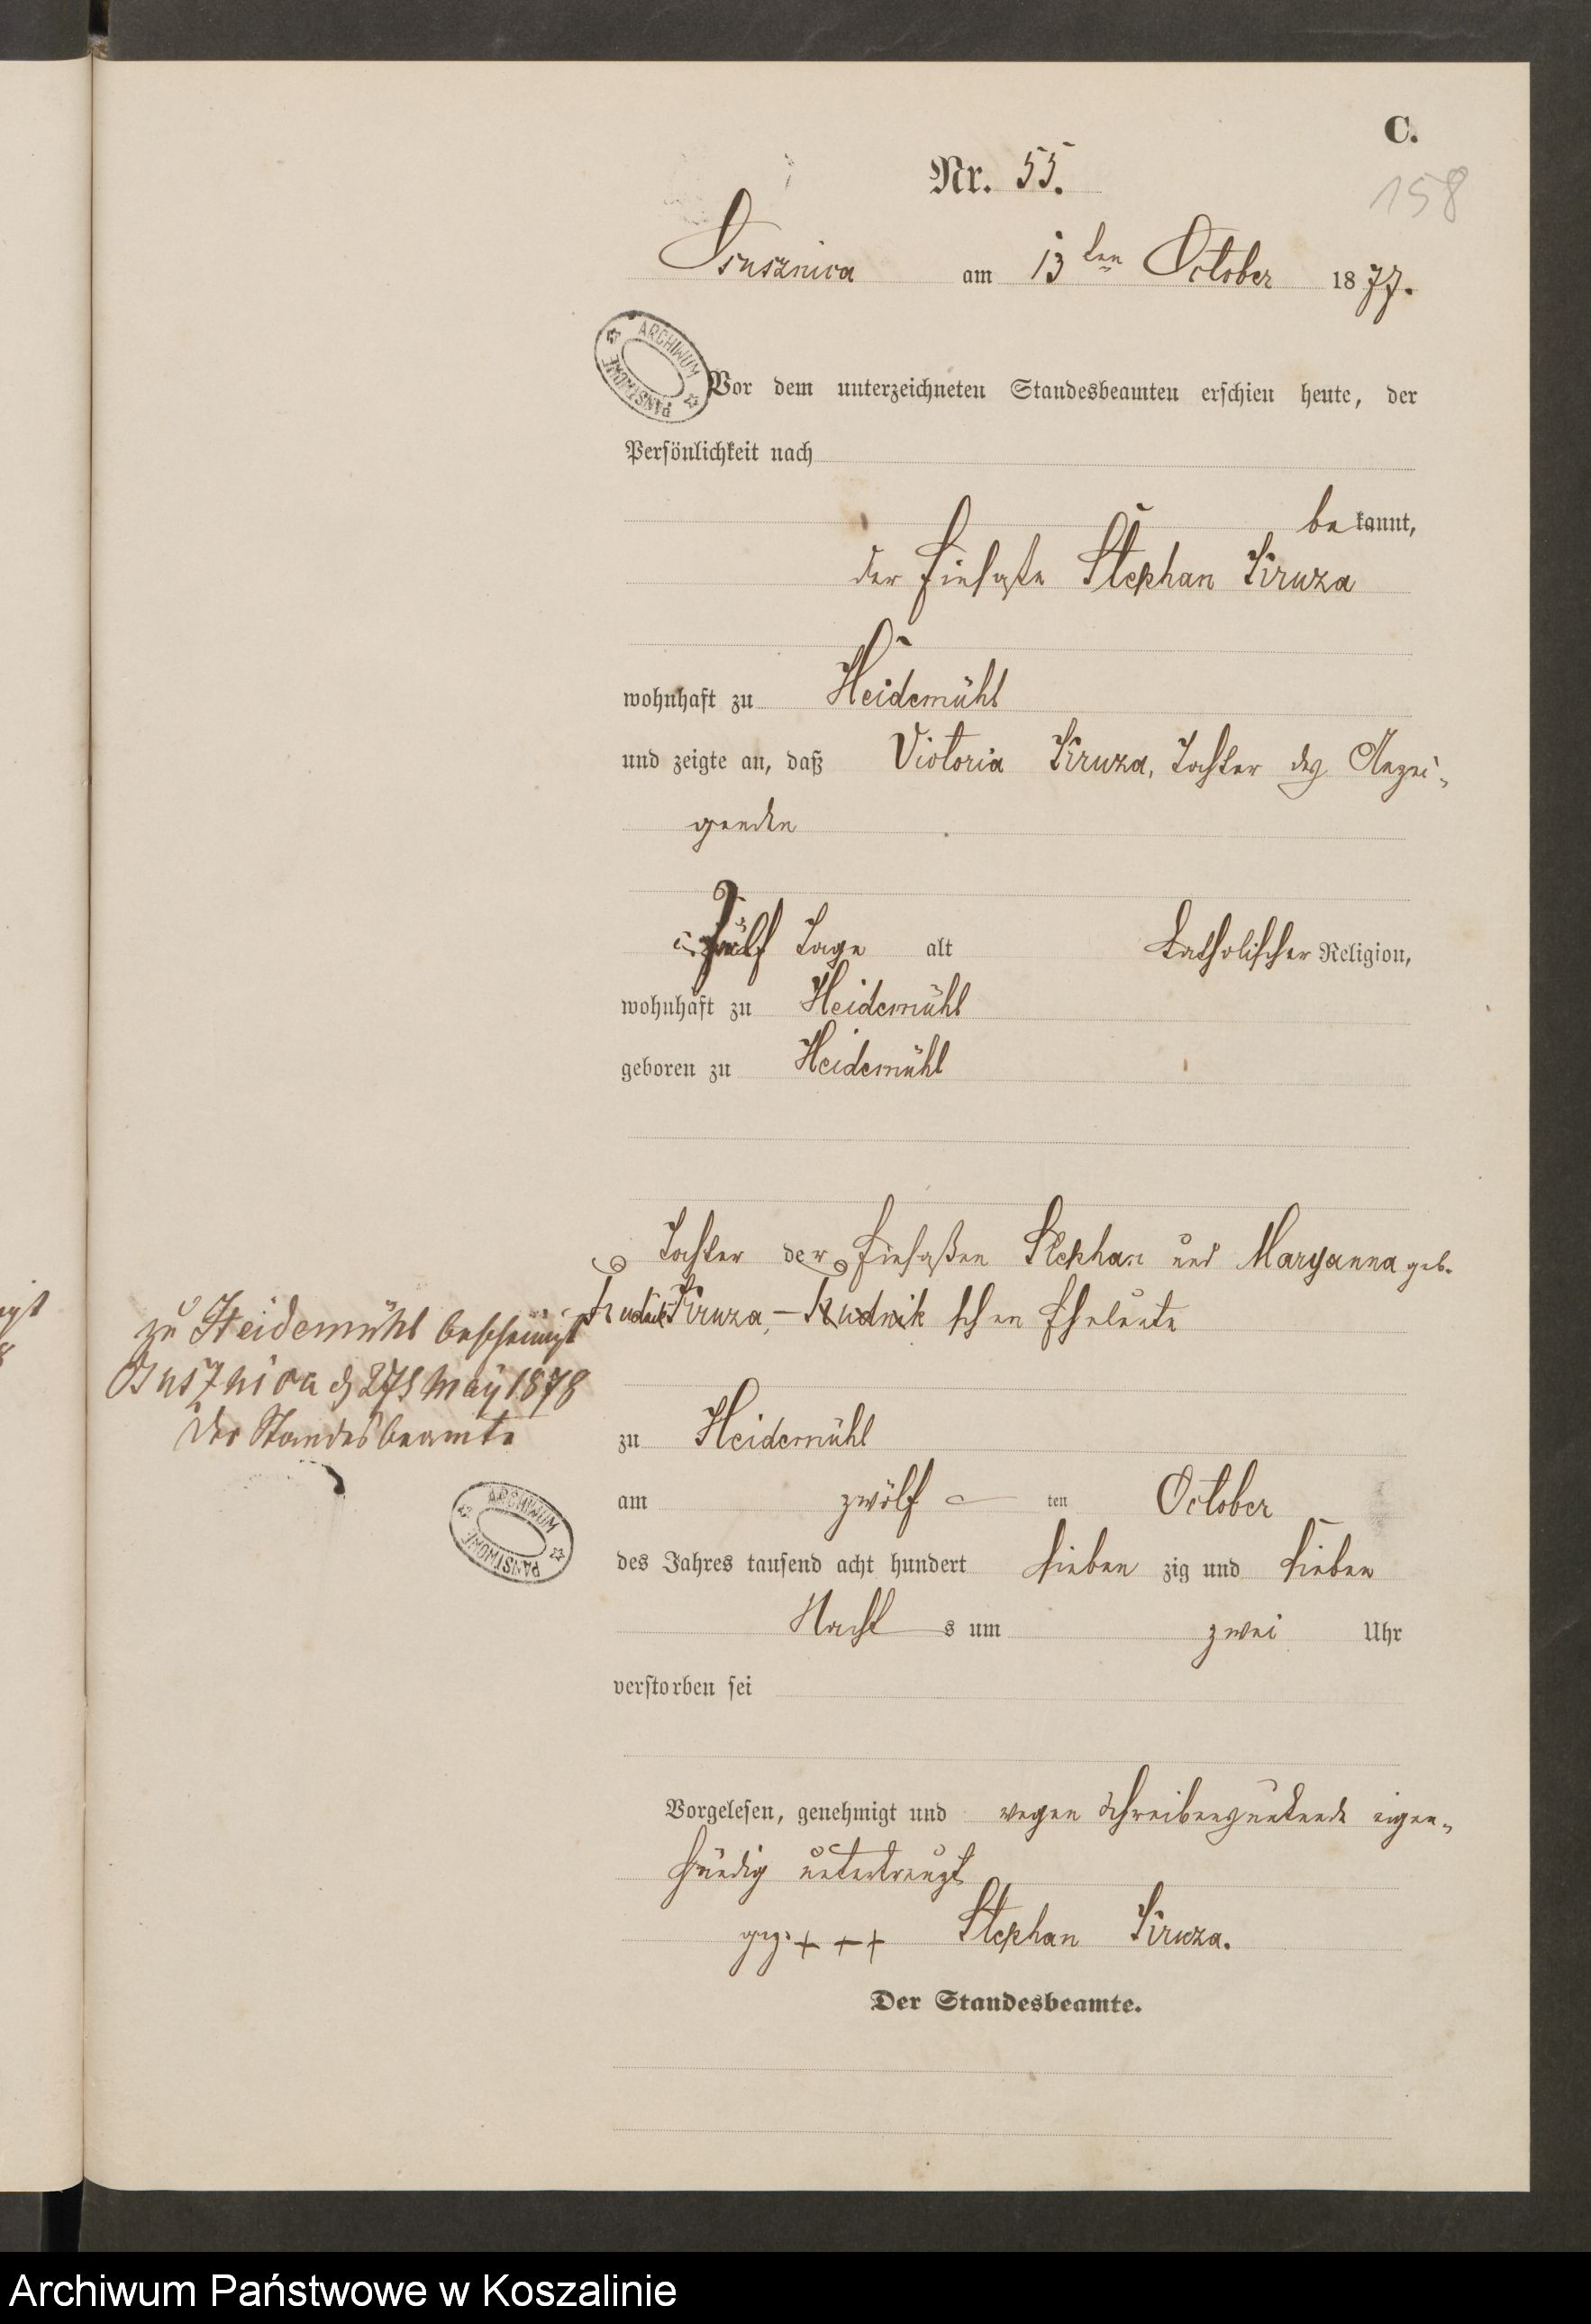 C.
Nr. 55.
158
Osusznica am 13ten October 1877.
ARCHIWUM PAŃSTWOWE
Vor dem unterzeichneten Standesbeamten erschien heute, der
Persönlichkeit nach
bekannt,
der Einsaße Stephan Kruza
wohnhaft zu Heidemühl
und zeigte an, daß Victoria Kruza, Tochter des Anzei-
genden
Tage alt katholischer Religion,
wohnhaft zu Heidemühl
geboren zu Heidemühl
Tochter der Einsaßen Stephan und Maryanna geb.
Kruza - Rudnik schen Eheleute
zu Heidemühl bescheinigt
Osusznica d 27t May 1878
Der Standesbeamte
zu Heidemühl
ARCHIWUM PAŃSTWOWE
am zwölf ten October
des Jahres tausend acht hundert sieben zig und sieben
Nacht s um zwei Uhr
verstorben sei
Vorgelesen, genehmigt und wegen Schreibensunkunde eigen-
händig unterkreuzt
gez. + + + Stephan Kruza.
Der Standesbeamte.
Archiwum Państwowe w Koszalinie